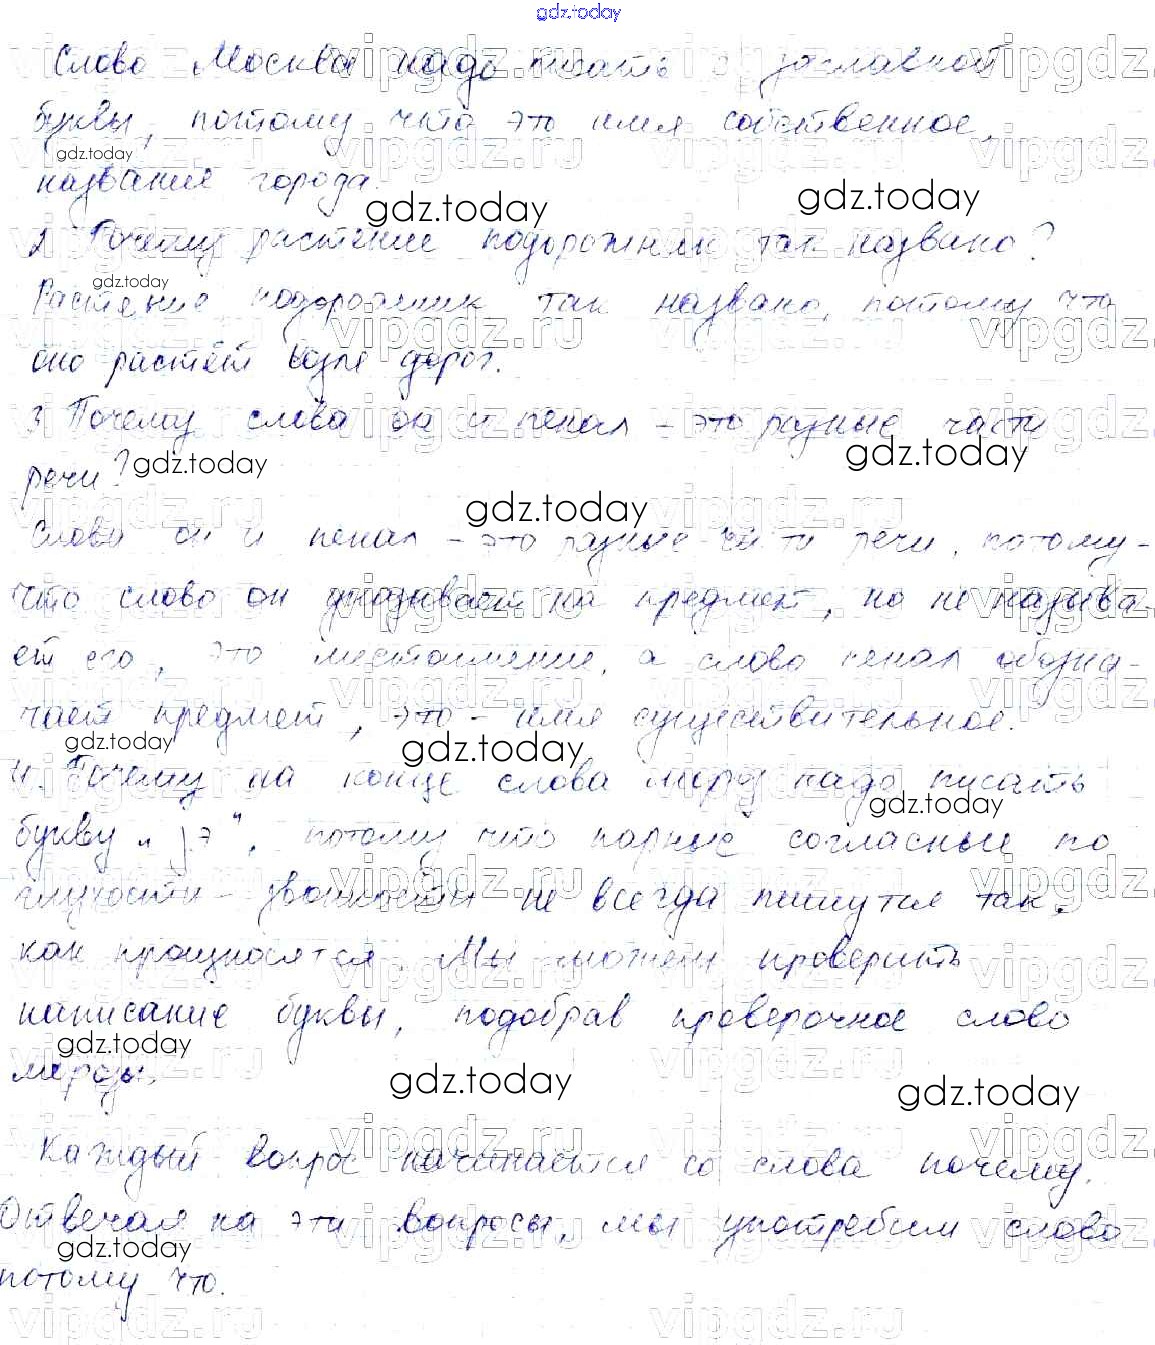 gdz.today
Слово Москва надо писать с заглавной
буквы, потому что это имя собственное,
gdz.today
название города.
gdz.today
2. Почему растение подорожник так названо?
gdz.today
Растение подорожник так названо, потому что
оно растёт возле дорог.
3. Почему слова он и пенал – это разные части
речи?
gdz.today
gdz.today
gdz.today
Слова он и пенал – это разные части речи, потому-
что слово он указывает на предмет, но не называ-
ет его, это местоимение, а слово пенал обозна-
чает предмет, это - имя существительное.
gdz.today
gdz.today
4. Почему на конце слова мороз надо писать
gdz.today
букву „ з ", потому что парные согласные по
глухости – звонкости не всегда пишутся так,
как произносятся. Мы можем проверить
написание буквы, подобрав проверочное слово
gdz.today
морозы.
gdz.today
gdz.today
Каждый вопрос начинается со слова почему.
Отвечая на эти вопросы, мы употребим слово
gdz.today
потому что.
vipgdz.ru